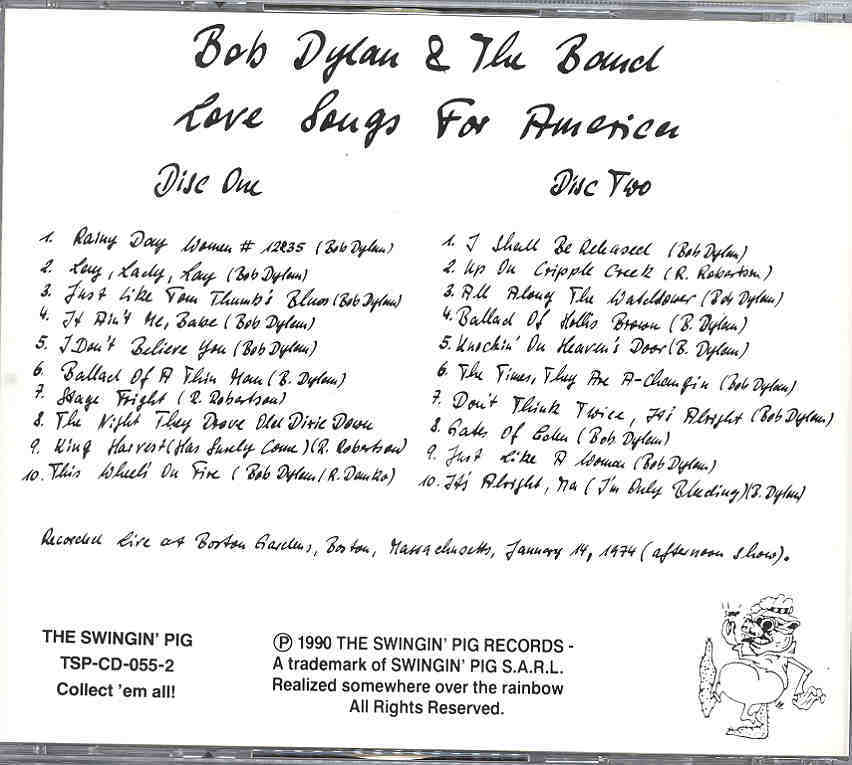 Bob Dylan & The Band
Love Songs For America
Disc One
1. Rainy Day Women # 12&35 (Bob Dylan)
2. Lay, Lady, Lay (Bob Dylan)
3. Just Like Tom Thumb's Blues (Bob Dylan)
4. It Ain't Me, Babe (Bob Dylan)
5. I Don't Believe You (Bob Dylan)
6. Ballad Of A Thin Man (B. Dylan)
7. Stage Fright (R. Robertson)
8. The Night They Drove Old Dixie Down
9. King Harvest (Has Surely Come) (R. Robertson)
10. This Wheel's On Fire (Bob Dylan/R. Danko)
Disc Two
1. I Shall Be Released (Bob Dylan)
2. Up On Cripple Creek (R. Robertson)
3. All Along The Watchtower (Bob Dylan)
4. Ballad Of Hollis Brown (B. Dylan)
5. Knockin' On Heaven's Door (B. Dylan)
6. The Times, They Are A-Changin (Bob Dylan)
7. Don't Think Twice, It's Alright (Bob Dylan)
8. Gates Of Eden (Bob Dylan)
9. Just Like A Woman (Bob Dylan)
10. It's Alright, Ma (I'm Only Bleeding) (B. Dylan)
Recorded live at Boston Gardens, Boston, Massachusetts, January 14, 1974 (afternoon show).
THE SWINGIN' PIG
TSP-CD-055-2
Collect 'em all!
Ⓟ 1990 THE SWINGIN' PIG RECORDS -
A trademark of SWINGIN' PIG S.A.R.L.
Realized somewhere over the rainbow
All Rights Reserved.